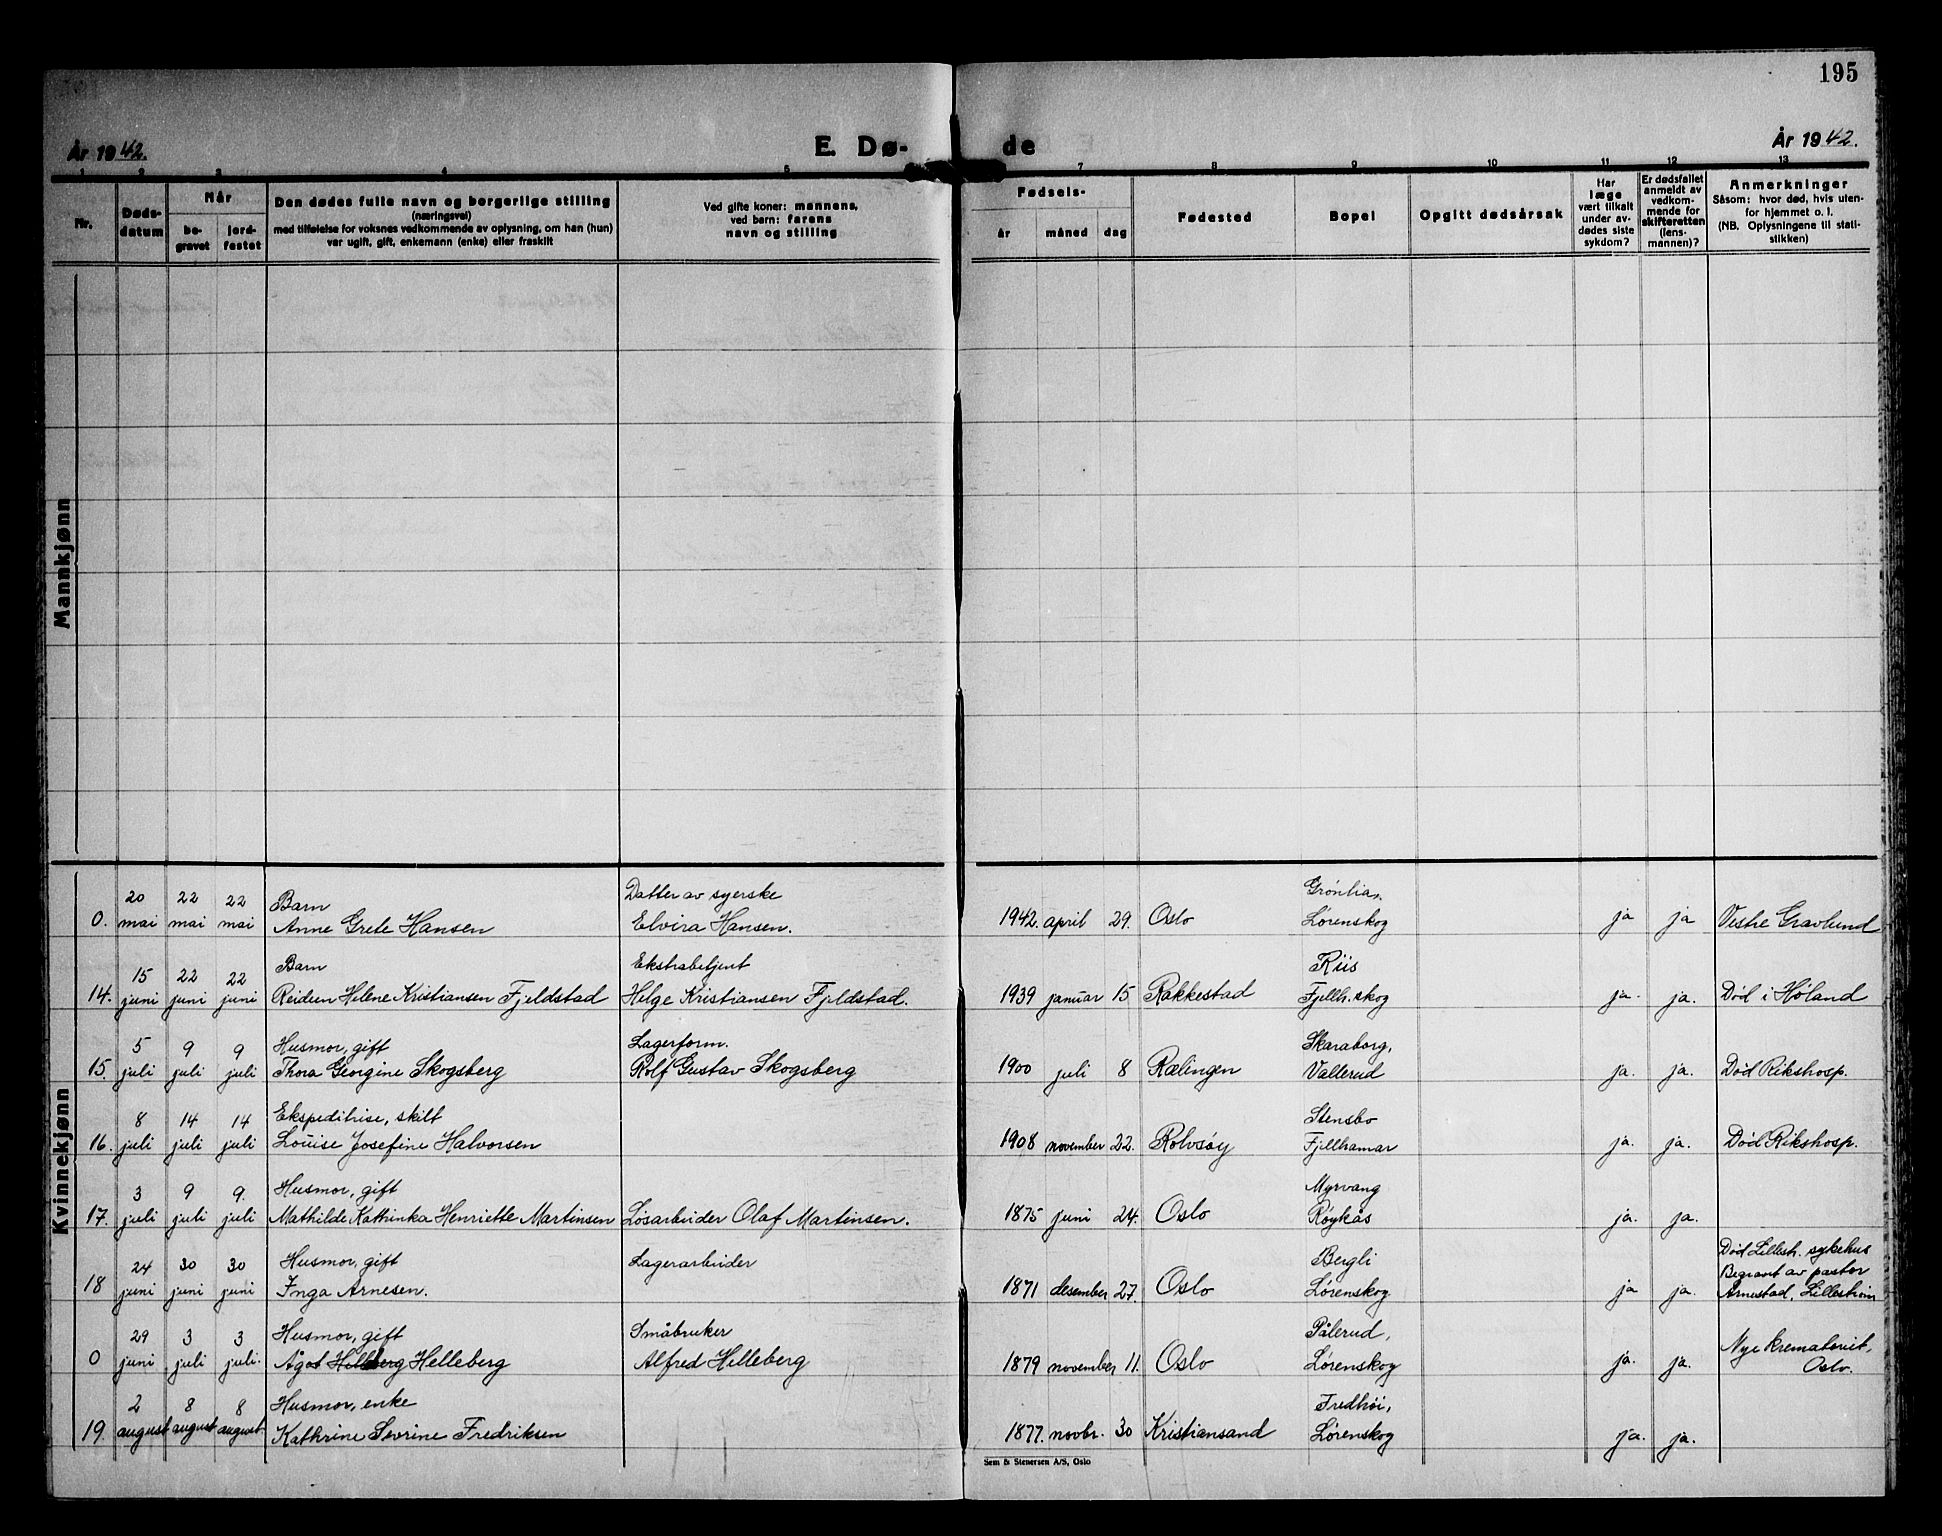 195
År 1942.
E. Dø-
de
År 1942.
1 2 3 4 5 7 8 9 10 11 12 13
Nr.
Døds-
datum
Når
be-
gravet
jord-
festet
Den dødes fulle navn og borgerlige stilling
(næringsvei)
med tilføielse for voksnes vedkommende av oplysning, om han (hun)
var ugift, gift, enkemann (enke) eller fraskilt
Ved gifte koner: mannens,
ved barn: farens
navn og stilling
Fødsels-
år måned dag
Fødested
Bopel
Opgitt dødsårsak
Har
læge
vært tilkalt
under av-
dødes siste
sykdom?
Er dødsfallet
anmeldt av
vedkom-
mende for
skifteretten
(lens-
mannen)?
Anmerkninger
Såsom: hvor død, hvis uten-
for hjemmet o. l.
(NB. Oplysningene til stati-
stikken)
Mannkjønn
Kvinnekjønn
20 22 22 Barn Datter av syerske Grönlia,
0. mai mai mai Anne Grete Hansen Elvira Hansen. 1942. april 29. Oslo Lørenskog ja ja Vestre Gravlund
15 22 22 Barn Ekstrabetjent Riis
14. juni juni juni Reidun Helene Kristiansen Fjeldstad Helge Kristiansen Fjeldstad. 1939 januar 15 Rakkestad Fjellh. skog ja. ja. Død i Høland
5 9 9 Husmor, gift Lagerform. Skaraborg,
15. juli juli juli Thora Georgine Skogsberg Rolf Gustav Skogsberg 1900 juli 8 Rælingen Vallerud ja. ja. Død Rikshosp.
8 14 14 Ekspeditrise, skilt Stensbo
16. juli juli juli Louise Josefine Halvorsen 1908 november 22. Rolvsøy Fjellhamar ja. ja. Død Rikshosp.
3 9 9. Husmor, gift Myrvang
17. juli juli juli Mathilde Kathinka Henriette Martinsen Løsarbeider Olaf Martinsen. 1875 juni 24. Oslo Røykås ja. ja.
24 30 30 Husmor, gift Lagerarbeider Bergli Død Lillestr. sykehus
Begravt av pastor
18 juni juni juni Inga Arnesen. 1871 desember 27. Oslo Lørenskog ja ja. Arnestad, Lillestrøm
29 3 3 Husmor, gift Småbruker Pålerud, Nye krematoriet,
0 juni juli juli. Ågot Helleberg Alfred Helleberg 1879 november 11. Oslo Lørenskog ja. ja. Oslo.
2 8 8 Husmor, enke Fredhöi,
19. august august august. Kathrine Sevrine Fredriksen 1877. novbr. 30 Kristiansand Lørenskog ja. ja.
Sem & Stenersen A/S, Oslo